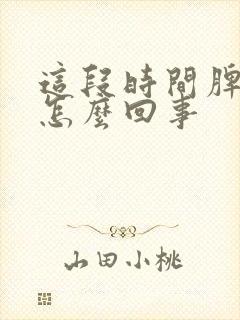 這段時間脾
怎麼回事
山田小桃